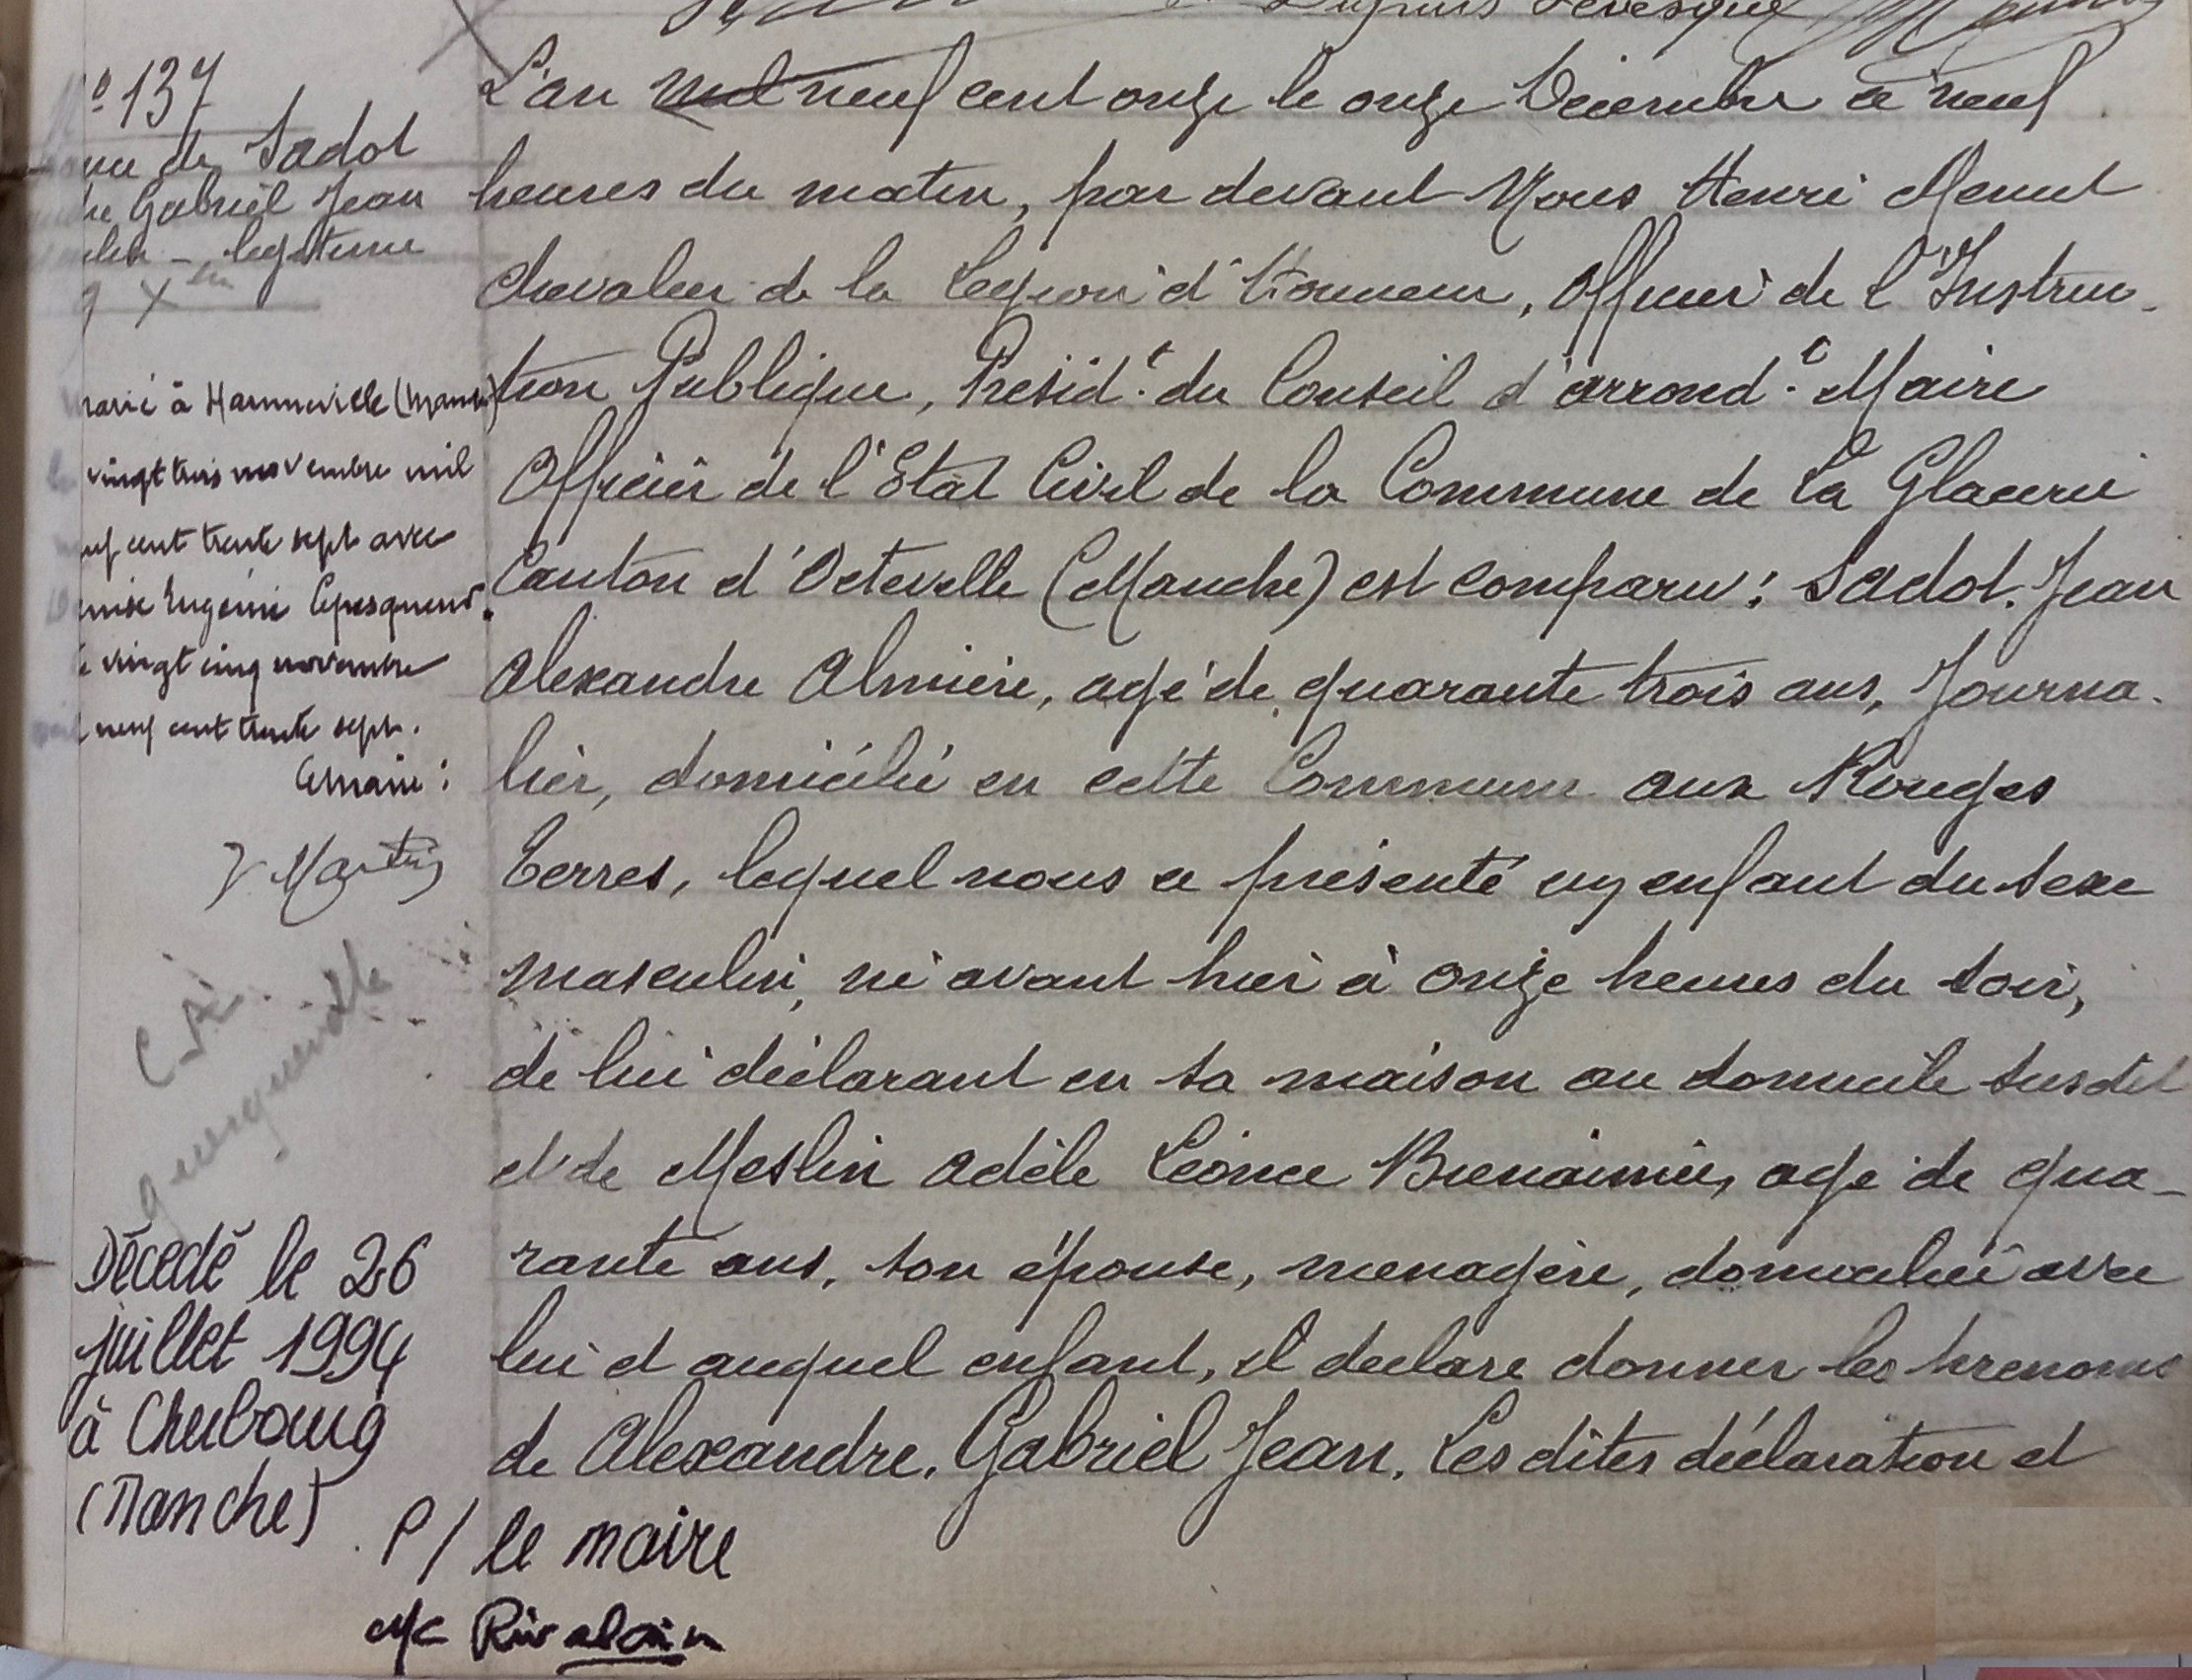 Lévesque
º 137
de Sadot
Gabriel Jean
légitime
9 Xbre
marié à
vingt trois novembre mil
neuf cent trente sept avec
Eugénie
vingt cinq novembre
neuf cent trente sept.
Le Maire :
Martin
L'an mil neuf cent onze le onze Décembre à neuf
heures du matin, par devant Nous Henri Menut
Chevalier de la Légion d'Honneur, Officier de l'Instruc-
tion Publique, Présid.t du Conseil d'arrond.t Maire
Officier de l'Etat Civil de la Commune de La Glacerie
Canton d'Octeville (Manche) est comparu : Sadot. Jean
Alexandre Almire, agé de quarante trois ans, Journa-
lier, domicilié en cette Commune aux Rouges
Terres, lequel nous a présenté un enfant du sexe
masculin, né avant hier à onze heures du soir,
de lui déclarant en sa maison au domicile susdit
et de Meslin Adèle Léonce Bienaimée, agé de qua-
rante ans, son épouse, ménagère, domiciliée avec
lui et auquel enfant, il déclare donner les prénoms
de Alexandre. Gabriel Jean. Les dites déclaration et
querqueville
Décedé le 26
juillet 1994
à Cherbourg
(Manche)
P/ le maire
Rivaloin